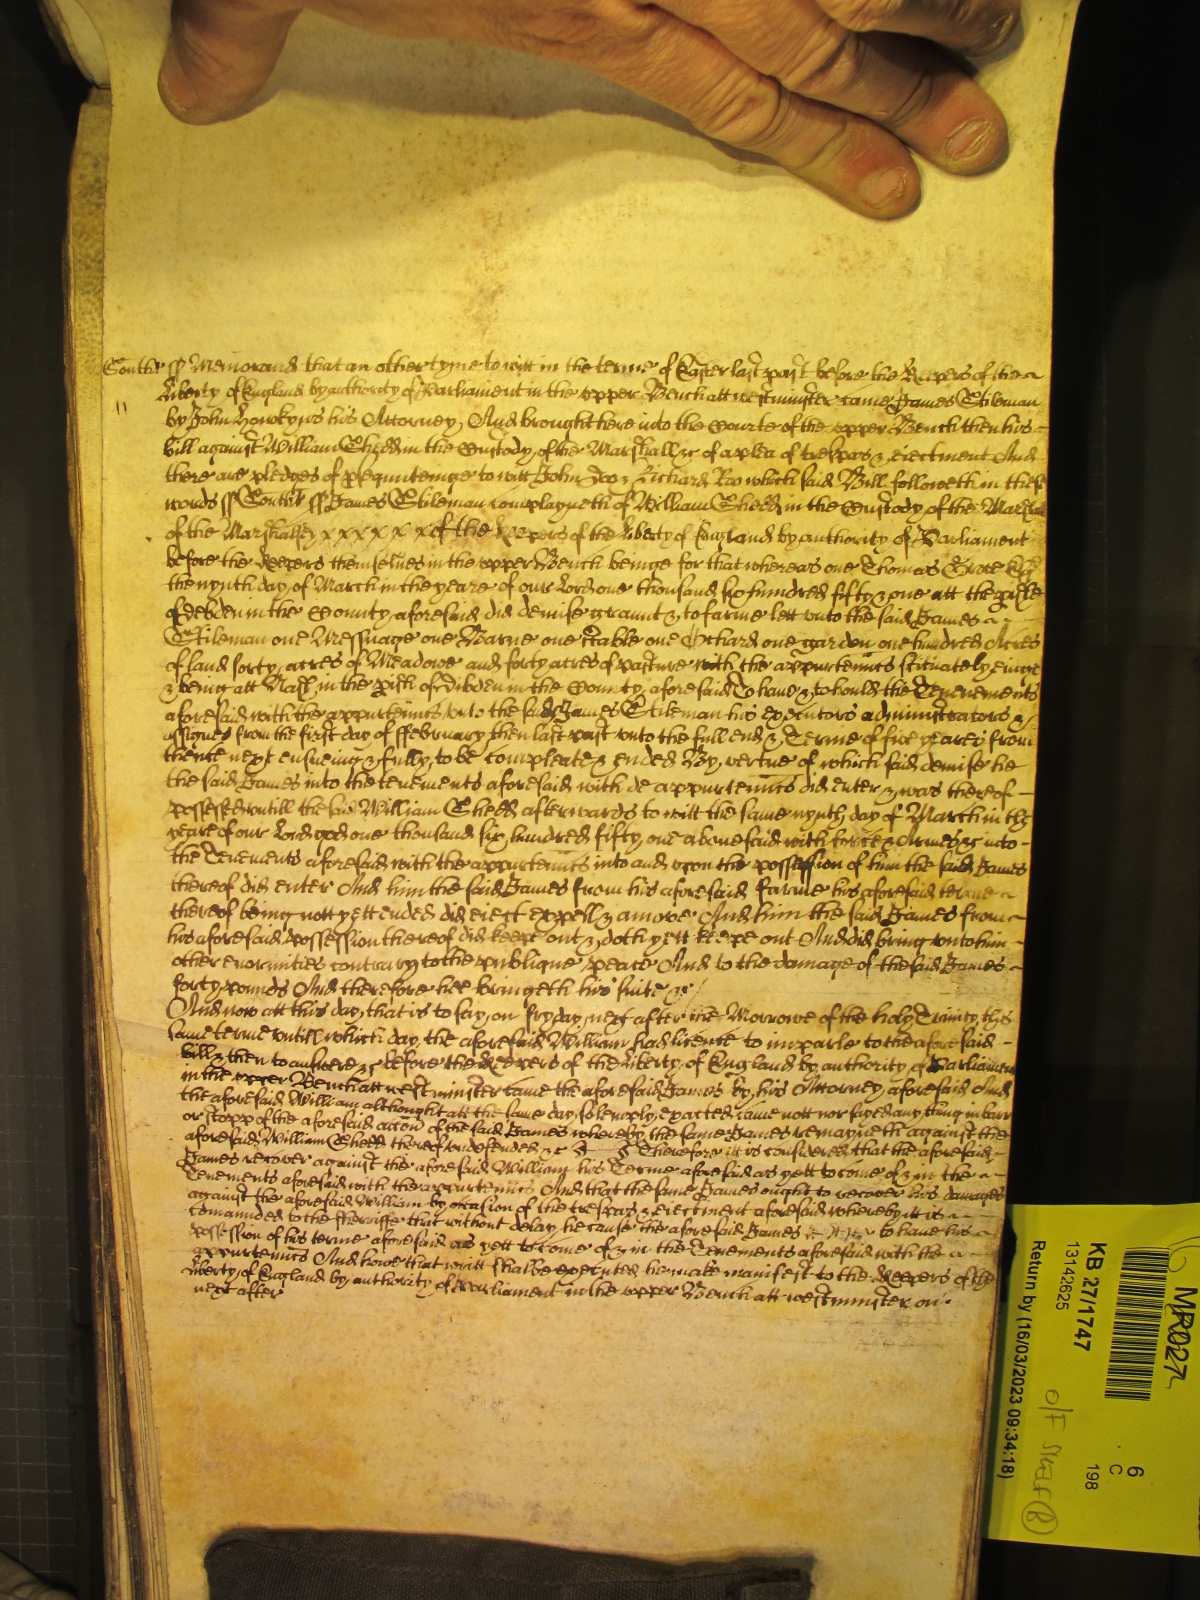 Southt ss Memorand that an other tyme to witt in the terme of Easter last past before the Keepers of the
Liberty of England by authority of Parliament in the upper Bench att westminster came James Stileman
by John his Attorney, And brought here into the Courte of the upper Bench then his
bill against William Chedd in the Custody of the Marshall &c of a plea of trespas & eiectment And
there are pledges of prosequuteinge to witt John Doo & Richard Roo which said Bill followeth in these
words ss Southt ss James Stileman complayneth of William Chedd in the Custody of the Marshall
of the Marshallsey x x x x x x of the Keepers of the liberty of England by authority of Parliament
before the Keepers themselues in the upper Bench beinge for that whereas one Thomas Grove
the nynth day of March in the yeare of our Lord one thousand six hundred fifty & one att the prish
of debden in the County aforesaid did demise graunt & to farme lett vnto the said James
Stileman one Messuage one Barne one stable one Orchard one garden one hundred Acres
of land forty acres of Meadowe and forty acres of pasture with the appurtenncs scituate lyeinge
& being att in the pish of dibden in the County aforesaid To haue & to hould the Tenements
aforesaid with the appurtenncs vnto the said James Stileman his executors administrators &
assignes from the first day of ffebruary then last past vnto the full end & Terme of five yeares from
thence next ensueing & fully to be compleate & ended By vertue of which said demise he
the said James into the tenements aforesaid with de appurtenncs did enter & was thereof
possessed vntill the said William Chedd afterwards to witt the same nynth day of March in the
yeare of our Lord god one thousand six hundred fifty one abouesaid with force & Armes &c into
the Tenements aforesaid with the appurtenncs into and vpon the possession of him the said James
thereof did enter And him the said James from his aforesaid farme his aforesaid terme
thereof being nott yett ended did eiect expell & amove And him the said James from
his aforesaid possession thereof did keepe out & doth yett keepe out And did bring vnto him
other enormities contrary to the publique peace And to the damage of the said James
forty pounds And therefore hee bringeth his suite &c
And now att this day, that is to say, on fryday next after the Morrowe of the holy Trinity this
same terme vntill which day, the aforesaid William had licence to imparle to the aforesaid
bill & then to answere &c before the Keepers of the Liberty of England by authority of Parliament
in the upper Bench att westminster came the aforesaid James by his Attorney aforesaid And
the aforesaid William althought att the same day, solemply exacted came nott nor sayed any thing in barr
or stopp of the aforesaid accon of the said James whereby the same James remayneth against the
aforesaid William Chedd thereof vndefended &c Therefore itt is considered that the aforesaid
James recover against the aforesaid William his Terme aforesaid as yett to come of & in the
Tenements aforesaid with the appurtenncs And that the same James ought to recover his damages
against the aforesaid William by occasion of the trespas & eiectment aforesaid whereby itt is
comaunded to the sheriffe that without delay he cause the aforesaid James to haue his
possession of his terme aforesaid as yett to come of & in the Tenements aforesaid with the
appurtenncs And howe that writt shalbe executed he make manifest to the Keepers of the
liberty of England by authority of Parliament in the upper Bench att westminster on
next after
MR027
KB 27/1747
13142625
Return by (16/03/2023 09:34:18)
6
C
198
o/F SHELF (B)